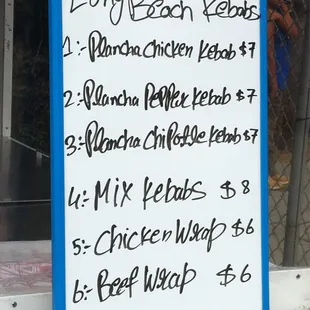 Long Beach Kebabs
1:-Plancha Chicken Kebab $7
2:-Plancha Pepper Kebab $7
3:-Plancha Chipotle Kebab $7
4:-Mix Kebabs $8
5:-Chicken Wrap $6
6:-Beef Wrap $6